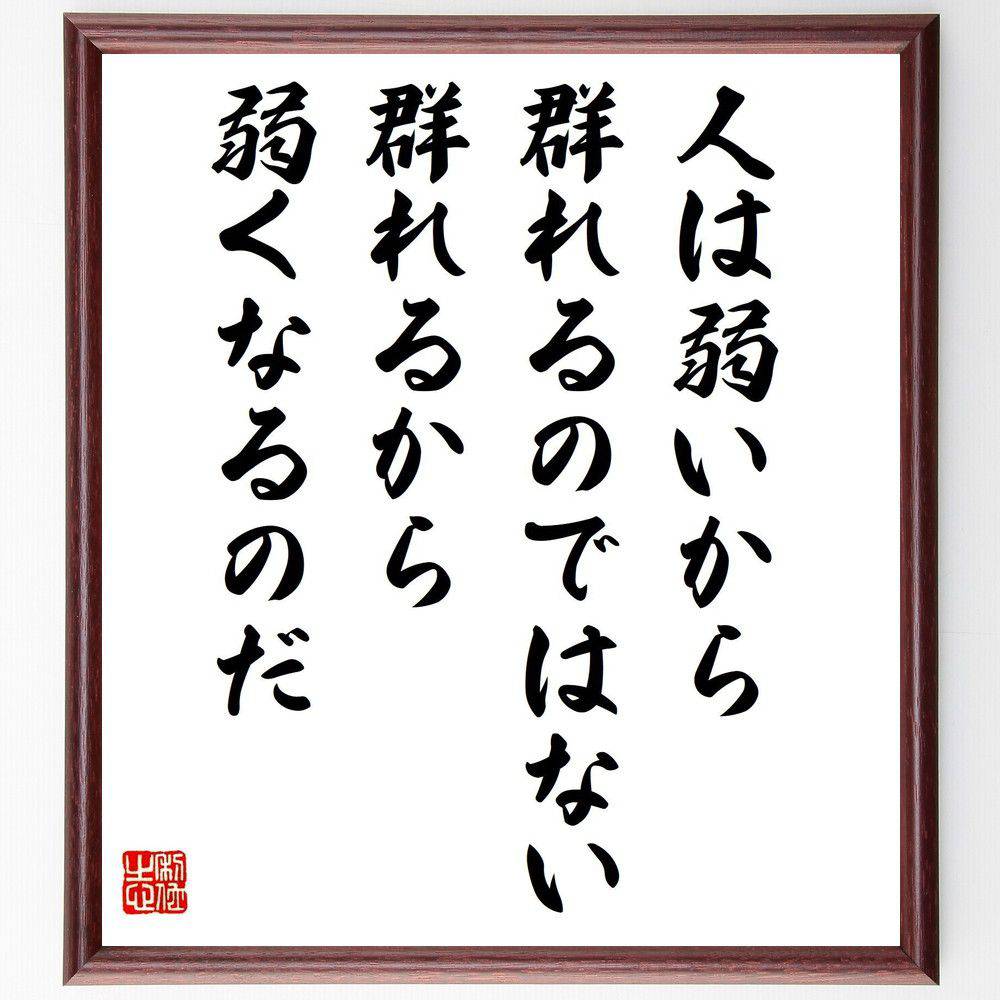 人は弱いから
群れるのではない
群れるから
弱くなるのだ